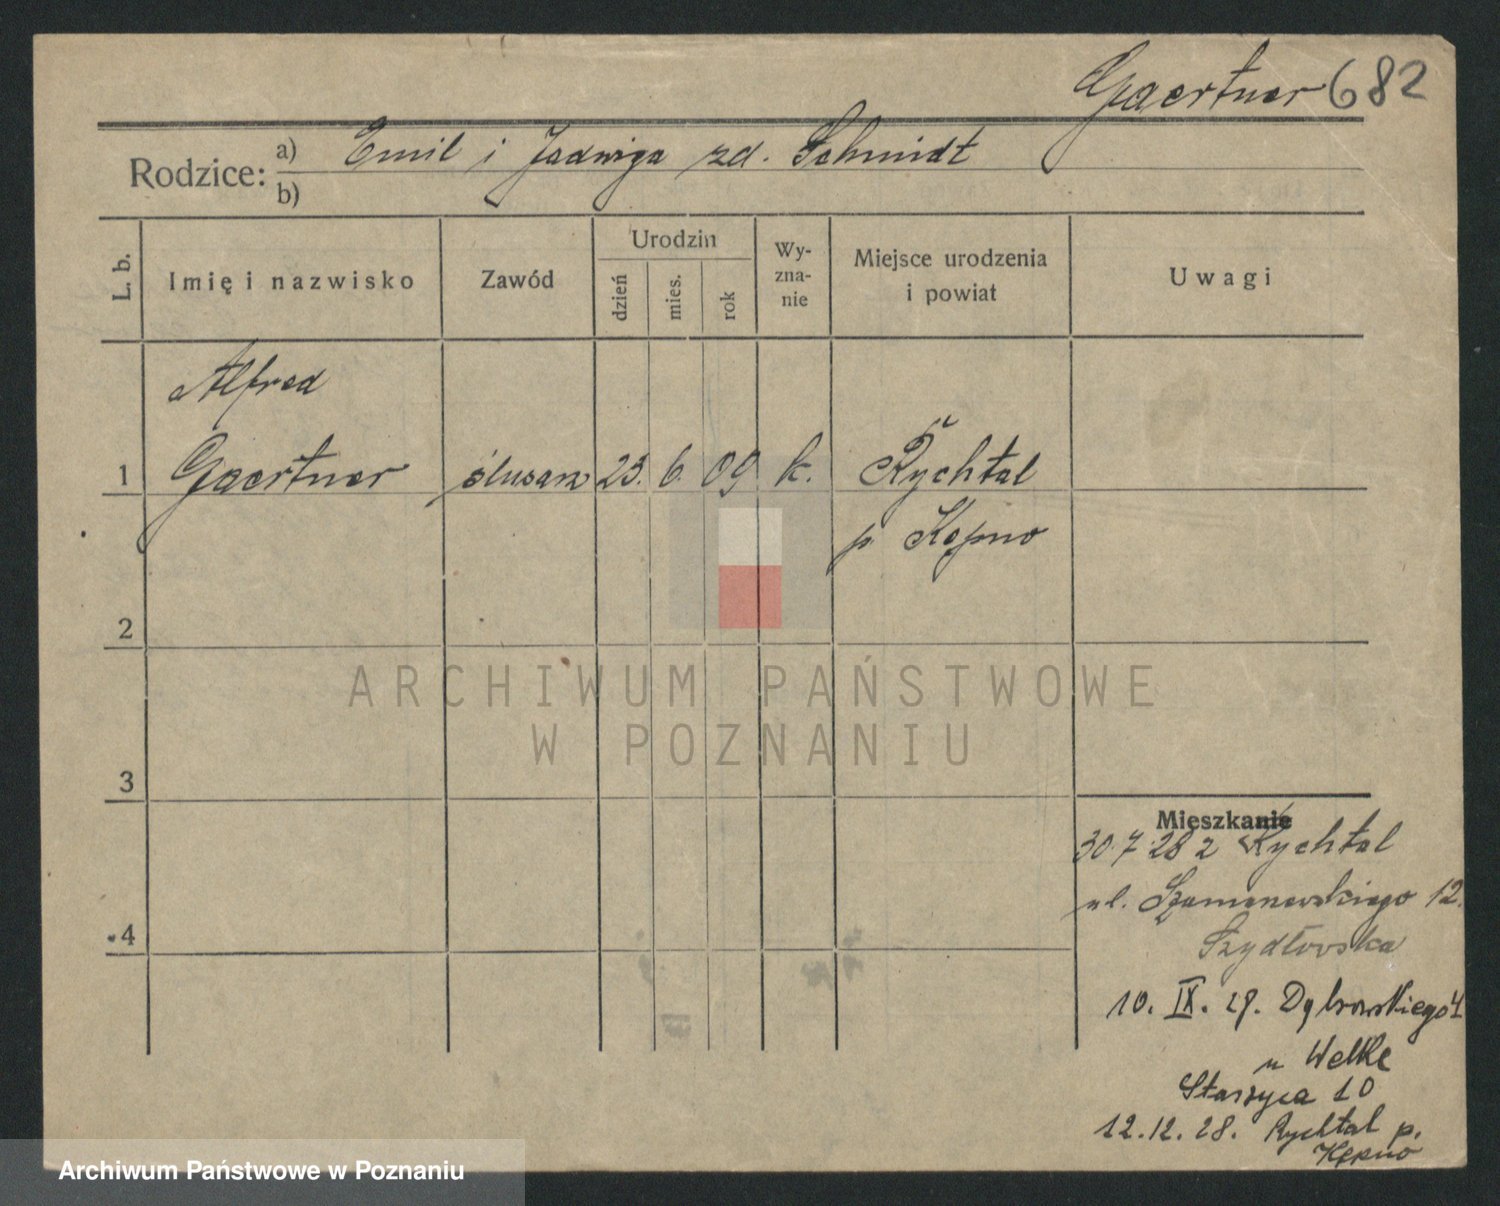 Gaertner 682
Rodzice: a) Emil i Jadwiga zd. Schmidt
b)
L. b.
Imię i nazwisko
Zawód
Urodzin
dzień
mies.
rok
Wy-
zna-
nie
Miejsce urodzenia
i powiat
Uwagi
Alfred
1 Gaertner ślusarz 23. 6. 09 k. Rychtal
p. Kępno
2
3
4
ARCHIWUM PAŃSTWOWE
W POZNANIU
Mieszkanie
30.7.28 z Rychtal
ul. 12.
Szydłowska
10. IX. 28. Dąbrowskiego
u Welke
10
12.12.28. Rychtal p.
Kępno
Archiwum Państwowe w Poznaniu